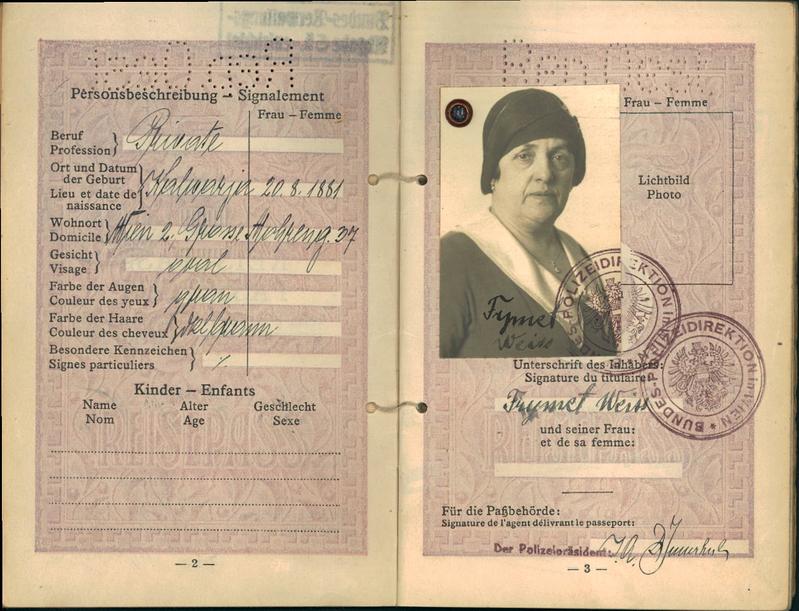 Personsbeschreibung – Signalement
Frau – Femme
Beruf
Profession
Private
Ort und Datum
der Geburt
Lieu et date de
naissance
Kalwarja 20.8.1881
Wohnort
Domicile
Wien 2, Grosse Mohreng. 37
Gesicht
Visage
oval
Farbe der Augen
Couleur des yeux
grau
Farbe der Haare
Couleur des cheveux
Besondere Kennzeichen
Signes particuliers
Kinder – Enfants
Name Alter Geschlecht
Nom Age Sexe
– 2 –
Frau – Femme
Lichtbild
Photo
Frymet
Weiss
BUNDESPOLIZEIDIREKTION in WIEN
BUNDESPOLIZEIDIREKTION in WIEN
Unterschrift des Inhabers:
Signature du titulaire:
Frymet Weiss
und seiner Frau:
et de sa femme:
Für die Paßbehörde:
Signature de l'agent délivrant le passeport:
Der Polizeipräsident:
I. A.
– 3 –